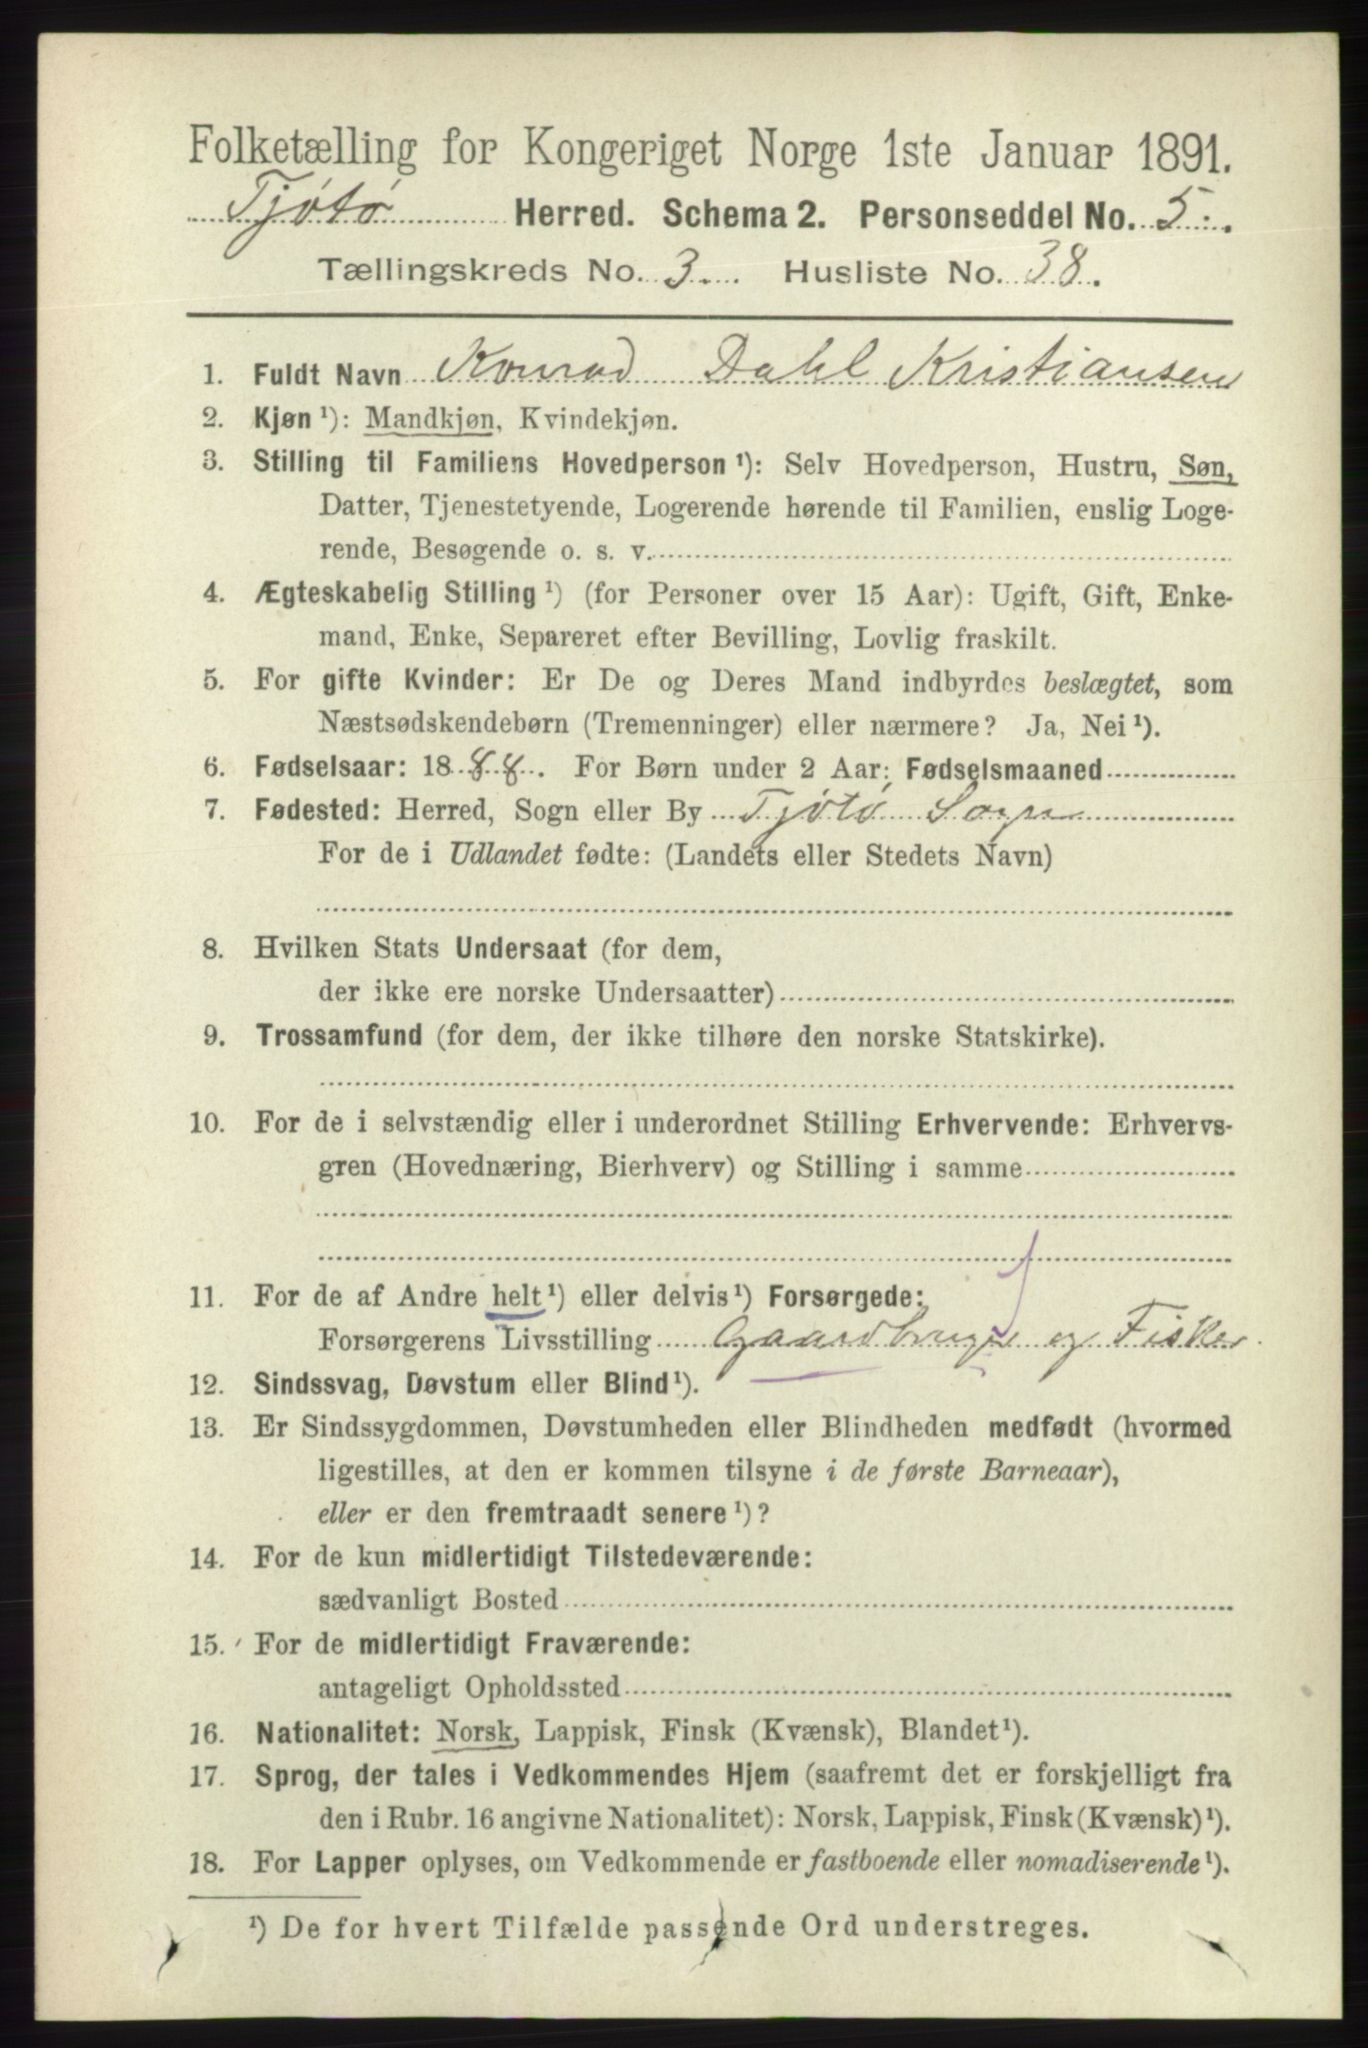 Folketælling for Kongeriget Norge 1ste Januar 1891.
Tjøtø Herred. Schema 2. Personseddel No. 5.
Tællingskreds No. 3. Husliste No. 38.
1. Fuldt Navn Konrad Dahl Kristiansen
2. Kjøn¹): Mandkjøn, Kvindekjøn.
3. Stilling til Familiens Hovedperson¹): Selv Hovedperson, Hustru, Søn,
Datter, Tjenestetyende, Logerende hørende til Familien, enslig Loge-
rende, Besøgende o. s. v.
4. Ægteskabelig Stilling¹) (for Personer over 15 Aar): Ugift, Gift, Enke-
mand, Enke, Separeret efter Bevilling, Lovlig fraskilt.
5. For gifte Kvinder: Er De og Deres Mand indbyrdes beslægtet, som
Næstsødskendebørn (Tremenninger) eller nærmere? Ja, Nei¹).
6. Fødselsaar: 1888. For Børn under 2 Aar: Fødselsmaaned
7. Fødested: Herred, Sogn eller By Tjøtø Sogn
For de i Udlandet fødte: (Landets eller Stedets Navn)
8. Hvilken Stats Undersaat (for dem,
der ikke ere norske Undersaatter)
9. Trossamfund (for dem, der ikke tilhøre den norske Statskirke).
10. For de i selvstændig eller i underordnet Stilling Erhvervende: Erhvervs-
gren (Hovednæring, Bierhverv) og Stilling i samme
11. For de af Andre helt¹) eller delvis¹) Forsørgede:
Forsørgerens Livsstilling Gaardbruger og Fisker.
12. Sindssvag, Døvstum eller Blind¹).
13. Er Sindssygdommen, Døvstumheden eller Blindheden medfødt (hvormed
ligestilles, at den er kommen tilsyne i de første Barneaar),
eller er den fremtraadt senere¹)?
14. For de kun midlertidigt Tilstedeværende:
sædvanligt Bosted
15. For de midlertidigt Fraværende:
antageligt Opholdssted
16. Nationalitet: Norsk, Lappisk, Finsk (Kvænsk), Blandet¹).
17. Sprog, der tales i Vedkommendes Hjem (saafremt det er forskjelligt fra
den i Rubr. 16 angivne Nationalitet): Norsk, Lappisk, Finsk (Kvænsk)¹).
18. For Lapper oplyses, om Vedkommende er fastboende eller nomadiserende¹).
¹) De for hvert Tilfælde passende Ord understreges.